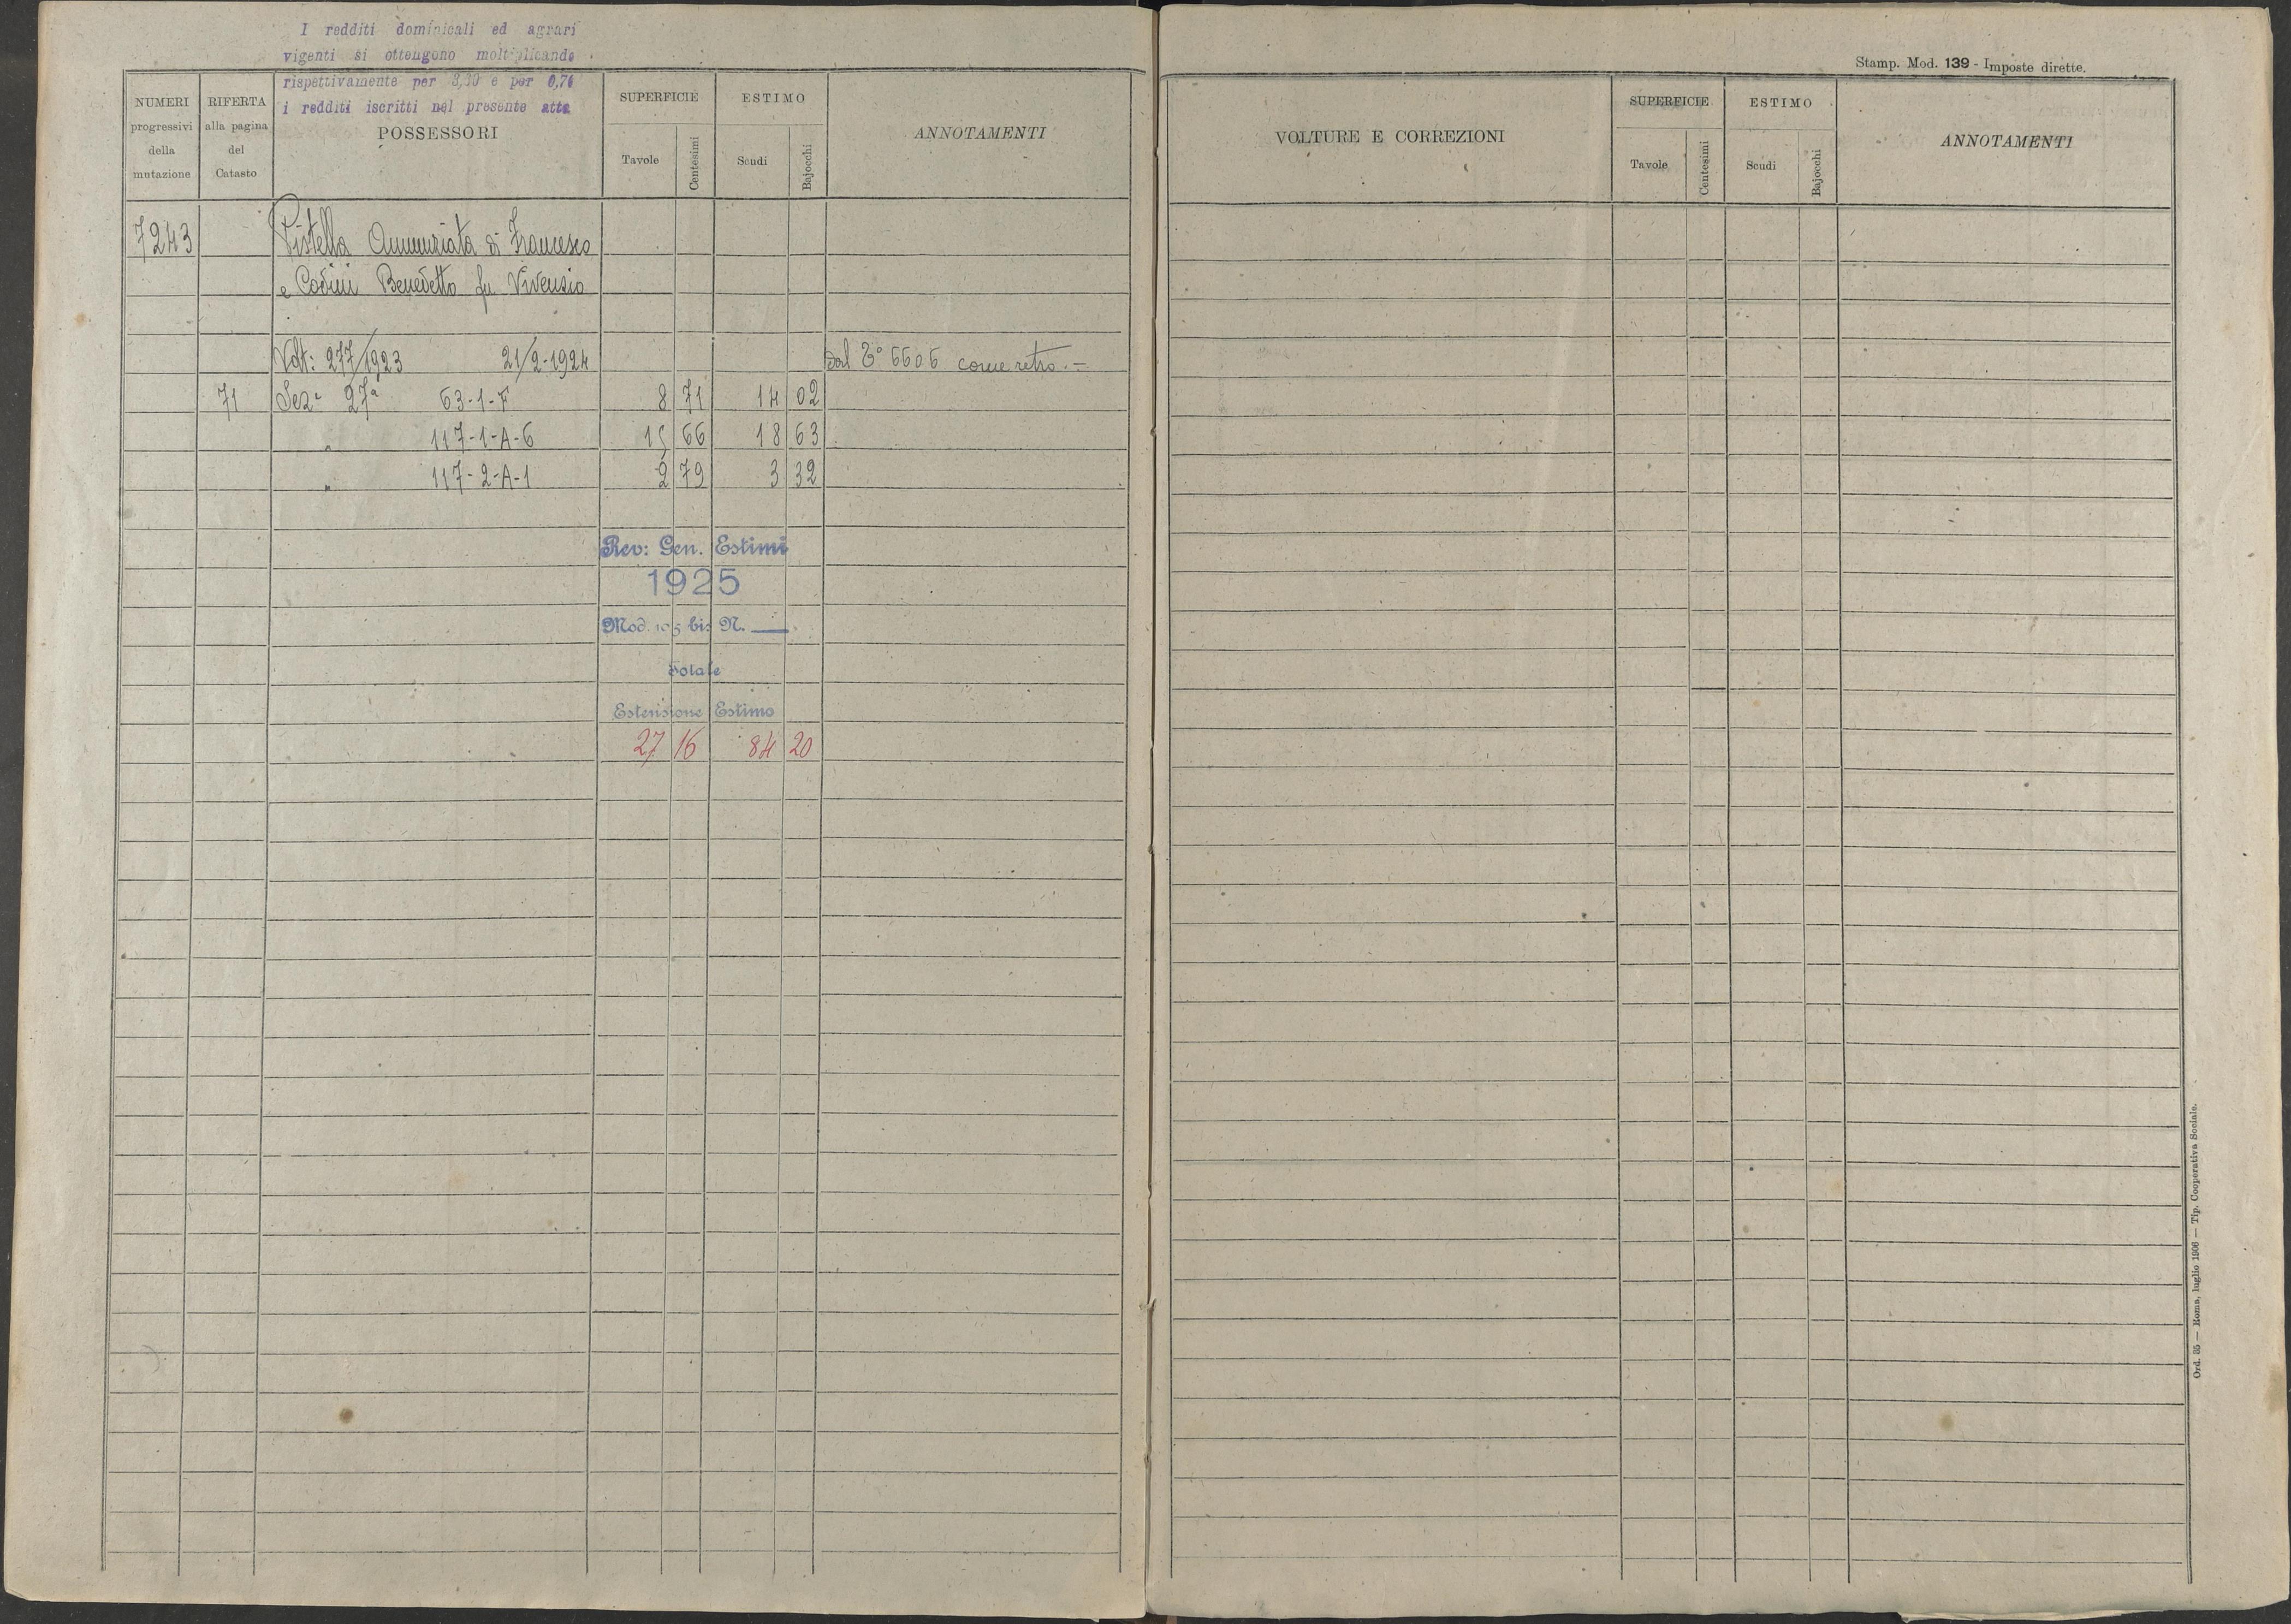 I redditi dominicali ed agrari
vigenti si ottengono moltiplicando
rispettivamente per 3,30 e per 0,76
i redditi iscritti nel presente atto
NUMERI
progressivi
della
mutazione
RIFERTA
alla pagina
del
Catasto
POSSESSORI
SUPERFICIE
Tavole
Centesimi
ESTIMO
Scudi
Bajocchi
ANNOTAMENTI
7243 Pistella Annunziata di Francesco
e Codini Benedetto fu Vivenzio
Volt: 277/1923 21/2-1924 Dal T° 6606 come retro.=
71 Seza 27a 63-1-F 8 71 14 02
" 117-1-A-6 15 66 18 63
" 117-2-A-1 2 79 3 32
Rev: Gen. Estimi
1925
Mod. 105 bis N.
Totale
Estensione Estimo
27 16 84 20
Stamp. Mod. 139 - Imposte dirette.
VOLTURE E CORREZIONI
SUPERFICIE
Tavole
Centesimi
ESTIMO
Scudi
Bajocchi
ANNOTAMENTI
Ord. 35 — Roma, luglio 1906 — Tip. Cooperativa Sociale.